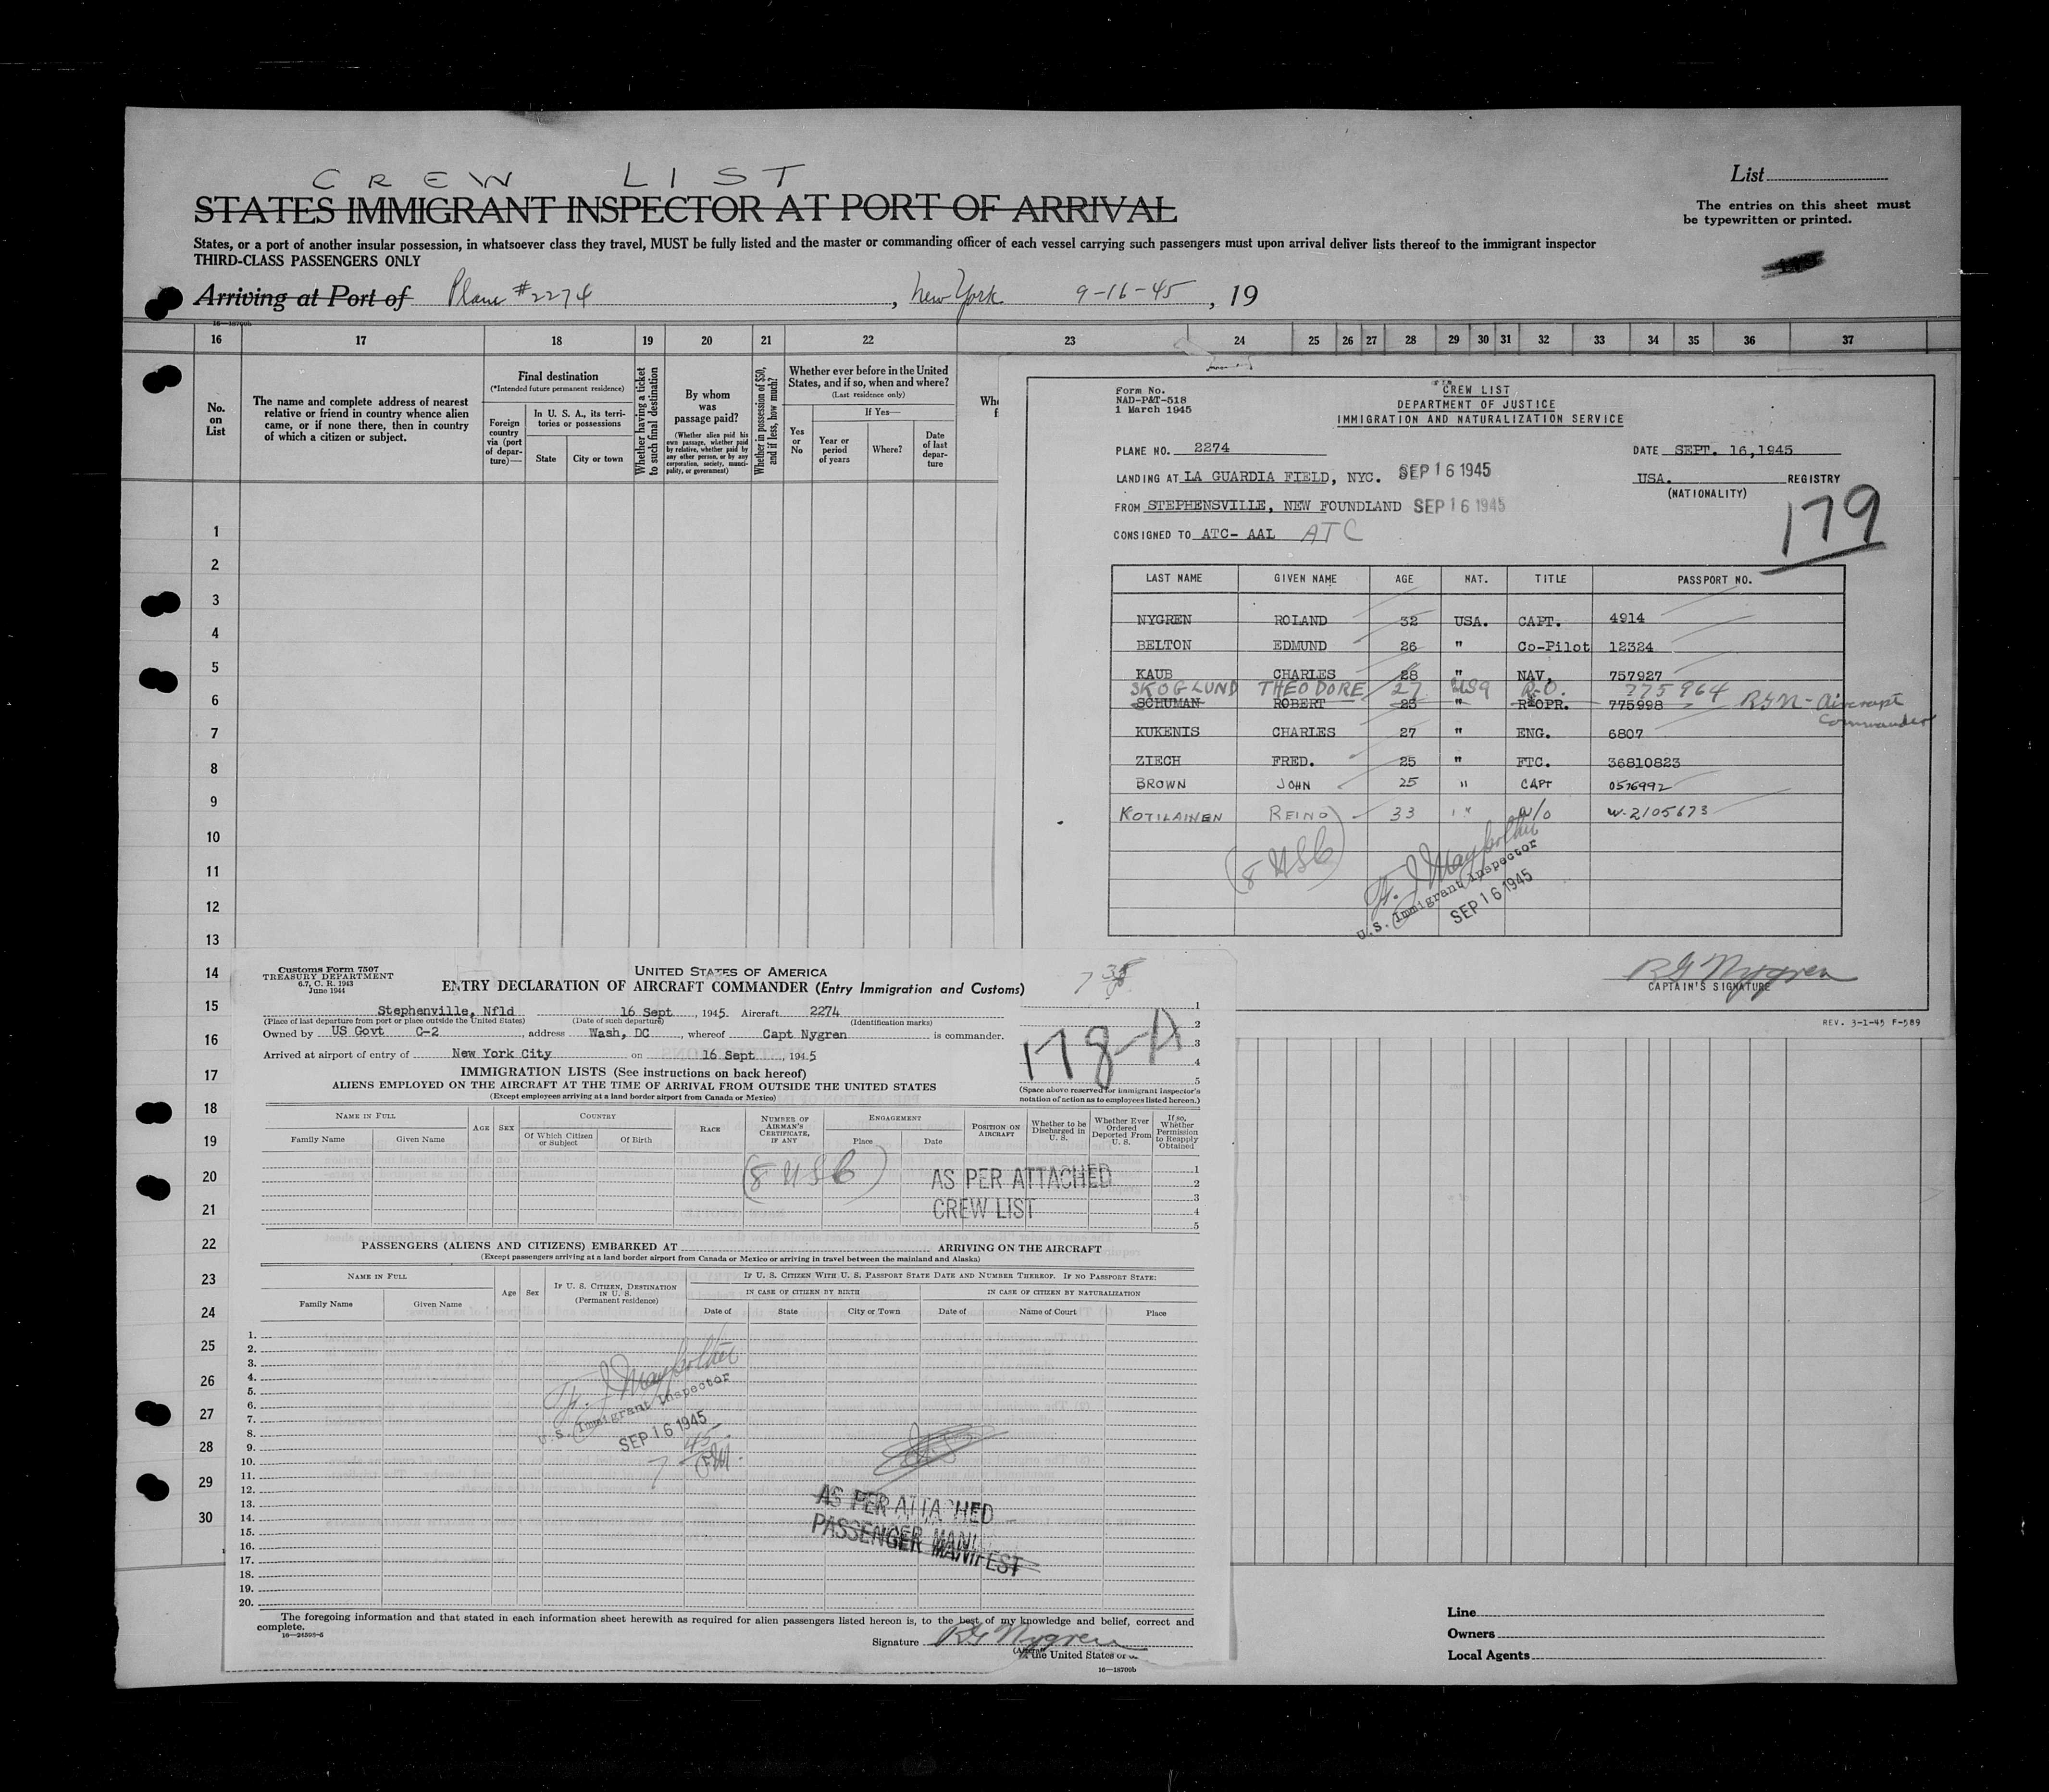 CREW LIST
STATES IMMIGRANT INSPECTOR AT PORT OF ARRIVAL
States, or a port of another insular possession, in whatsoever class they travel, MUST be fully listed and the master or commanding officer of each vessel carrying such passengers must upon arrival deliver lists thereof to the immigrant inspector
THIRD-CLASS PASSENGERS ONLY
List
The entries on this sheet must
be typewritten or printed.
Arriving at Port of Plane #2274, New York 9-16-45, 19
16-18709b
16 17 18 19 20 21 22 23 24 25 26 27 28 29 30 31 32 33 34 35 36 37
No. on List
The name and complete address of nearest relative or friend in country whence alien came, or if none there, then in country of which a citizen or subject.
Final destination
(*Intended future permanent residence)
Foreign country via (port of departure)—
In U. S. A., its territories or possessions
State
City or town
Whether having a ticket to such final destination
By whom was passage paid?
(Whether alien paid his own passage, whether paid by relative, whether paid by any other person, or by any corporation, society, municipality, or government)
Whether in possession of $50, and if less, how much?
Whether ever before in the United States, and if so, when and where?
(Last residence only)
Yes or No
If Yes—
Year or period of years
Where?
Date of last departure
1
2
3
4
5
6
7
8
9
10
11
12
13
14
15
16
17
18
19
20
21
22
23
24
25
26
27
28
29
30
Form No.
NAD-P&T-518
1 March 1945
CREW LIST
DEPARTMENT OF JUSTICE
IMMIGRATION AND NATURALIZATION SERVICE
PLANE NO. 2274
DATE SEPT. 16,1945
LANDING AT LA GUARDIA FIELD, NYC. SEP 16 1945
USA. REGISTRY
(NATIONALITY)
FROM STEPHENSVILLE, NEW FOUNDLAND SEP 16 1945
179
CONSIGNED TO ATC- AAL ATC
LAST NAME GIVEN NAME AGE NAT. TITLE PASSPORT NO.
NYGREN ROLAND 32 USA. CAPT. 4914
BELTON EDMUND 26 " Co-Pilot 12324
KAUB CHARLES 28 " NAV. 757927
SKOGLUND THEODORE 27 USA R-O. 775964
SCHUMAN ROBERT 25 " R*OPR. 775998 RGN - Aircraft Commander
KUKENIS CHARLES 27 " ENG. 6807
ZIECH FRED. 25 " FTC. 36810823
BROWN JOHN 25 " CAPT 0576992
KOTILAINEN REINO 33 " W/O W-2105673
(8 USC)
U.S. Immigrant Inspector
SEP 16 1945
RG Nygren
CAPTAIN'S SIGNATURE
REV. 3-1-45 F-589
Customs Form 7507
TREASURY DEPARTMENT
6.7, C. R. 1943
June 1944
UNITED STATES OF AMERICA
ENTRY DECLARATION OF AIRCRAFT COMMANDER (Entry Immigration and Customs)
Stephenville, Nfld 16 Sept, 1945. Aircraft 2274
(Place of last departure from port or place outside the United States) (Date of such departure) (Identification marks)
Owned by US Govt C-2, address Wash, DC, whereof Capt Nygren is commander.
Arrived at airport of entry of New York City on 16 Sept, 1945
178-A
1
2
3
4
5
(Space above reserved for immigrant inspector's notation of action as to employees listed hereon.)
IMMIGRATION LISTS (See instructions on back hereof)
ALIENS EMPLOYED ON THE AIRCRAFT AT THE TIME OF ARRIVAL FROM OUTSIDE THE UNITED STATES
(Except employees arriving at a land border airport from Canada or Mexico)
NAME IN FULL
Family Name
Given Name
AGE
SEX
COUNTRY
Of Which Citizen or Subject
Of Birth
RACE
NUMBER OF AIRMAN'S CERTIFICATE, IF ANY
ENGAGEMENT
Place
Date
POSITION ON AIRCRAFT
Whether to be Discharged in U. S.
Whether Ever Ordered Deported From U. S.
If so, Whether Permission to Reapply Obtained
(8 USC)
AS PER ATTACHED
CREW LIST
1
2
3
4
5
PASSENGERS (ALIENS AND CITIZENS) EMBARKED AT ARRIVING ON THE AIRCRAFT
(Except passengers arriving at a land border airport from Canada or Mexico or arriving in travel between the mainland and Alaska)
NAME IN FULL
Family Name
Given Name
Age
Sex
IF U. S. CITIZEN, DESTINATION IN U. S.
(Permanent residence)
IF U. S. CITIZEN WITH U. S. PASSPORT STATE DATE AND NUMBER THEREOF. IF NO PASSPORT STATE:
IN CASE OF CITIZEN BY BIRTH
IN CASE OF CITIZEN BY NATURALIZATION
Date of
State
City or Town
Date of
Name of Court
Place
1.
2.
3.
4.
5.
6.
7.
8.
9.
10.
11.
12.
13.
14.
15.
16.
17.
18.
19.
20.
U.S. Immigrant Inspector
SEP 16 1945
7 45 PM.
AS PER ATTACHED
PASSENGER MANIFEST
The foregoing information and that stated in each information sheet herewith as required for alien passengers listed hereon is, to the best of my knowledge and belief, correct and
complete.
16-24598-5
Signature RG Nygren
the United States or
16-18709b
Line
Owners
Local Agents